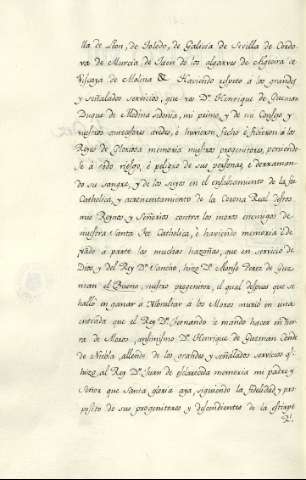 lla de Leon, de Toledo, de Galicia de Sevilla de Cordo
va de Murcia de Jaen de los algarves de Algecira de
Viscaya de Molina & Haviendo respeto a los grandes
y señalados servicios, que vos Dn. Henrique de Guzman
Duque de Medina sidonia, mi primo, y de mi Consejo y
vuestros antecesores ovides, é huvieron fecho é ficieron a los
Reyes de gloriosa memoria nuestros progenitores, poniendo
se à todo riesgo, é peligro de sus personas, é derraman
do su sangre, y de los suyos en el ensalsamiento de la fee
Catholica, y acrecentamiento de la Corona Real destos
mis Reynos y Señorios contra los moros enemigos de
nuestra Santa Fee Catholica, é haviendo memoria é de
xado à parte las muchas hazañas, que en servicio de
Dios, y del Rey Dn. Sancho, hizo Dn. Alonso Perez de Guz
man el Bueno, vuestro progenitor, el qual despues que se
halló en ganar a Gibraltar a los Moros murió en una
entrada que el Rey Dn. Fernando le mando hacer en tie
rra de Moros, assimismo Dn. Henrique de Guzman Conde
de Niebla, allende de los grandes y señalados servicios q.
hizo al Rey Dn. Juan de esclarecida memoria mi padre y
Señor que Santa gloria aya, siguiendo la fidelidad, y pro
posito de sus progenitores y descendientes de la estirpe